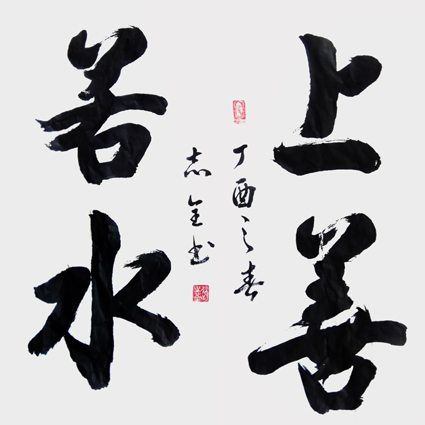 上善
若水
丁酉之春
志全书